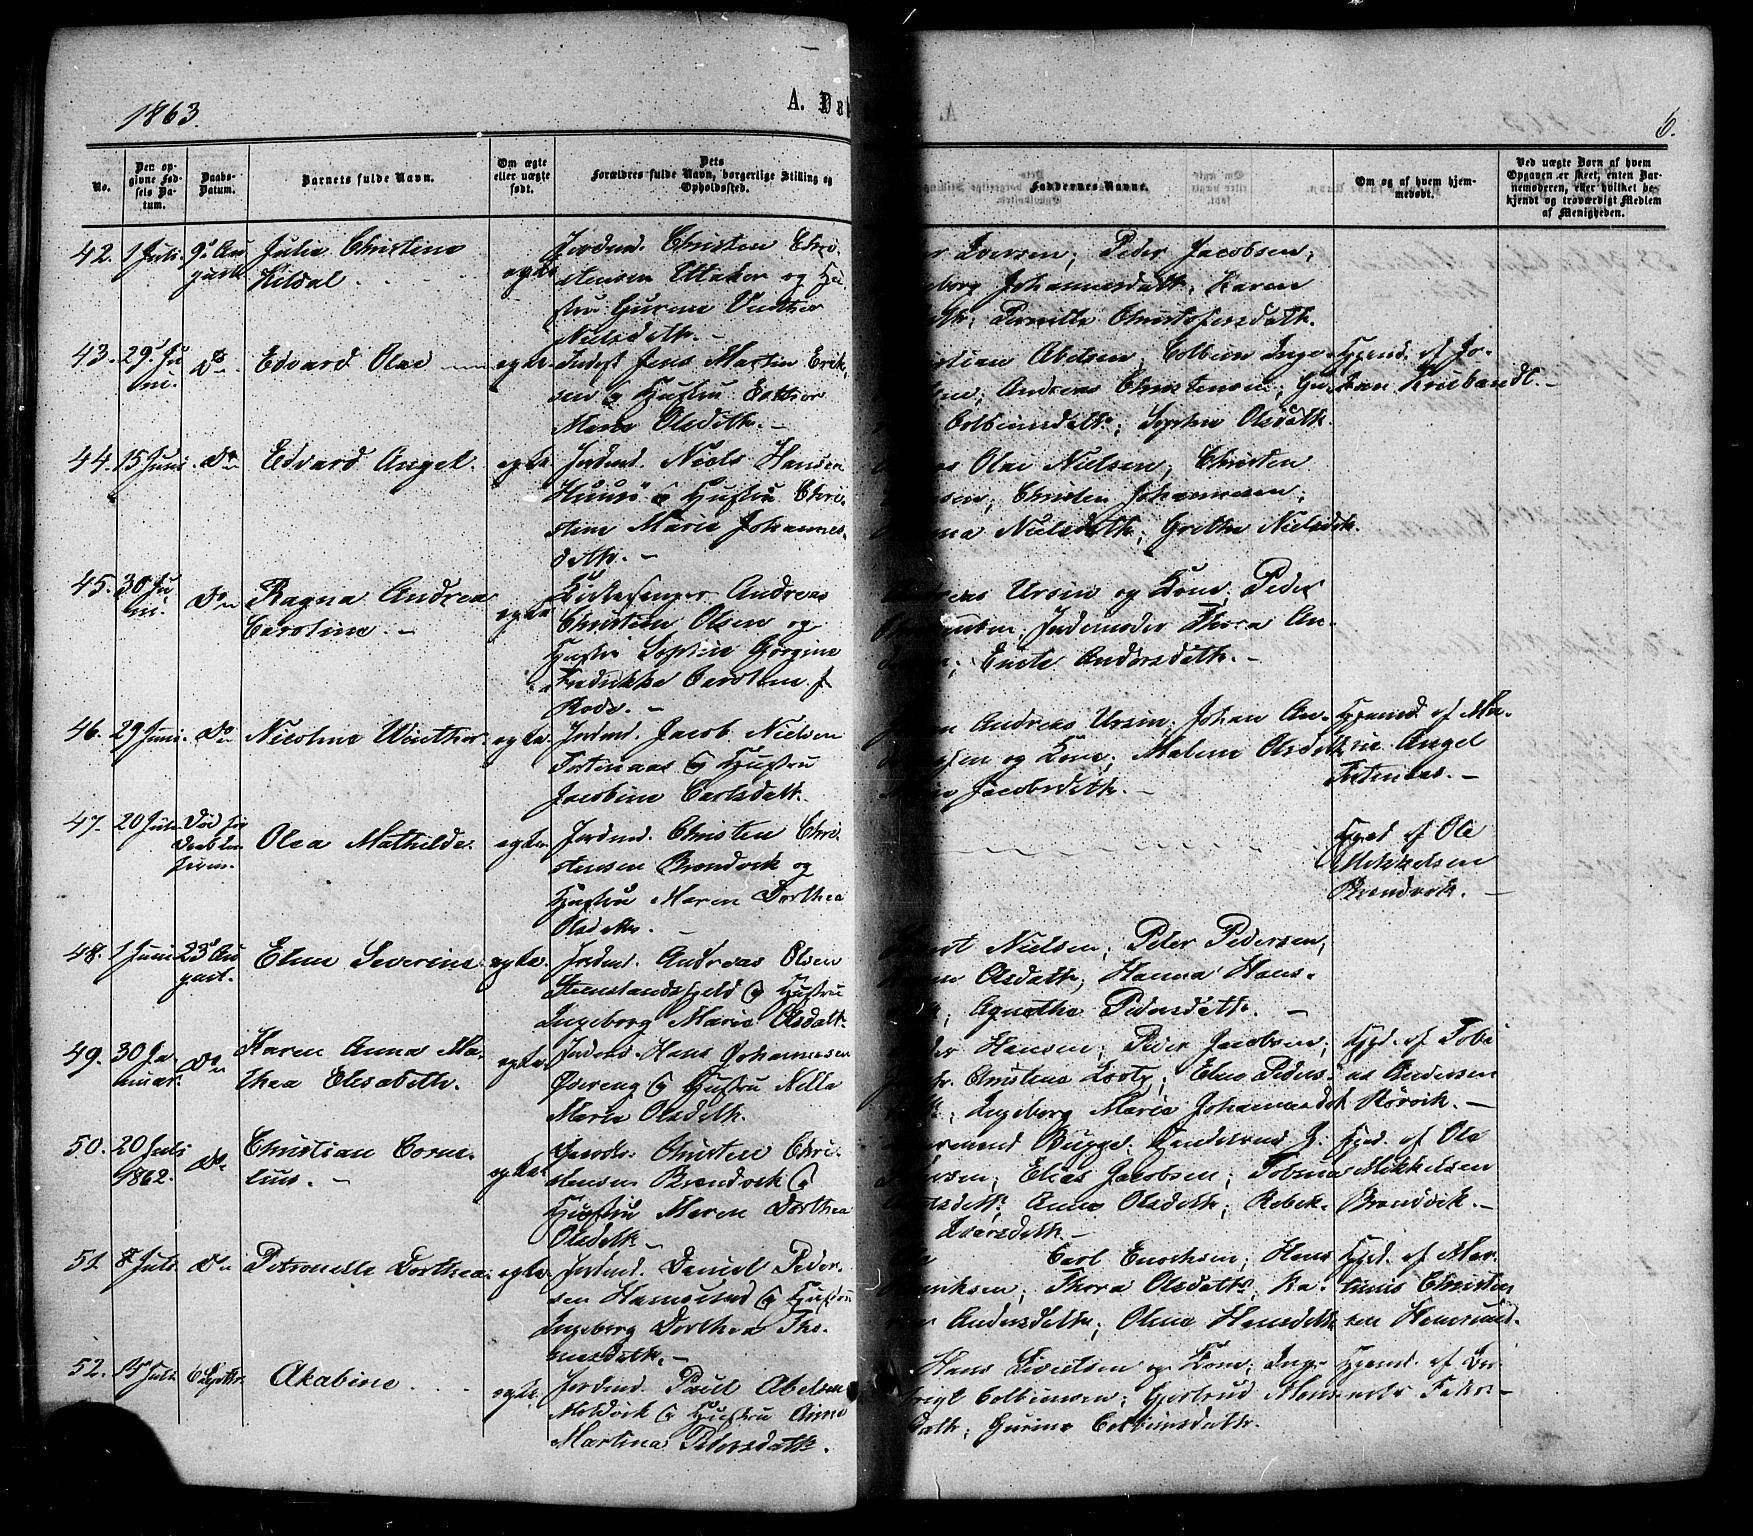 1863.
A. Døb
6.
No.
Den opgivne Fødsels Datum.
Daabs-Datum.
Barnets fulde Navn.
Om ægte eller uægte født.
Dets Forældres fulde Navn, borgerlige Stilling og Opholdssted.
Faddernes Navne.
Om og af hvem hjemmedøbt.
Ved uægte Børn af hvem Opgaven er skeet, enten Barnemoderen, eller hvilket bekjendt og troværdigt Medlem af Menigheden.
42. 1 Juli. 9de Au-
gust
Julie Christine
Kildal.
ægte
Jordmd. Christen Chri-
stensen Ettaker og Hu-
stru Gurine
Nielsdatr.
Iversen; Peder Jacobsen;
Johannesdatr. Karen
Pernille Christofersdatr.
43. 29. Ju-
ni.
Do
Edvard Olai
ægte
Inderst Jens Martin Erik-
sen & Hustru
Marie Olsdatr. -
Abelsen; Colbein Inge-
Andreas Christensen; Gu-
Colbeinsdatr.; Sophie Olsdatr.
Hjemd. af Jo-
han
44. 15 Juni Do
Edvard Angel.
ægte
Jordmd. Niels Hansen
& Hustru Chri-
stine Marie Johannes-
datr. -
Olai Nielsen; Christen
Christen Johannesen;
Nielsdatr; Grethe Nielsdtr.
45. 30 Ju-
ni.
Do
Ragna Andrea
Caroline. -
ægte
Kirkesanger Andreas
Christian Olsen og
Hustru Sophie Georgine
Fredrikke Caroline f.
Rode. -
Ursin og Kone; Peder
Jordemoder Thora An-
Andersdatr. -
46. 29 Juni. Do
Nicoline Winther.
ægte.
Jordmd. Jacob Nielsen
Fortenaas & Hustru
Jacobine Carlsdatr.
Andreas Ursin; Johan An-
og Kone; Malene Olsdatr
Jacobsdatr. -
Hjemd. af Ma-
rie Angel
Fortenaas. -
47. 20 Juli Død før
Daaben
Olea Mathilde.
ægte
Jordmd. Christen Chri-
stensen Brendvik og
Hustru Maren Dorthea
Olsdatr. -
Hjed. af Ole
Mikkelsen
Brendvik. -
48. 1 Juni 23d Au-
gust.
Eline Severine
ægte.
Jordmd. Andreas Olsen
Steenslandsfjeld & Hustru
Ingeborg Marie Olsdatr.
Nielsen; Peter Pedersen;
Olsdatr; Hanna Hans-
Agnethe Pedersdatr. -
49. 30 Ja-
nuar.
Do
Karen Anna Ma-
thea Elisabeth.
ægte
Hans Johannesen
Øvereng & Hustru Nille
Marie Olsdatr.
Hansen; Peder Jacobsen;
Christine Lortz; Eline Peders-
Ingeborg Marie Johannesdtr
Hjed. af Tobi-
as Andersen
Rørvik. -
50. 20 Juli
1862.
Do
Christian Corne-
lius. -
ægte
Christen Chri-
stensen Brendvik &
Hustru Maren Dorthea
Olsdatr. -
Bugge; Handelsmd J.
Elias Jacobsen;
Anne Olsdatr; Rebek-
Iversdatr. -
Hjed. af Ole
Mikkelsen
Brendvik. -
51 8 Juli. Do
Petronelle Dorthea.
ægte.
Jordmd. Daniel Peder-
sen Hamnsund & Hustru
Ingeborg Dorthea Tho-
masdatr. -
Carl Enochsen; Hans
Henriksen; Thora Olsdatr; Ka-
Andersdatr; Oline Hansdatr
Hjed. af Mar-
tinus Christen-
sen Hamnsund.
52. 14 Juli.
Akabine
ægte.
Jordmd. Poul Abelsen
Moldvik & Hustru Anne
Martina Pedersdatr.
Hans Sivertsen og Kone; Inge-
brigt Colbeinsen; Gjertrud Mons-
datr; Gurine Colbeinsdatr.
Hjemd. af